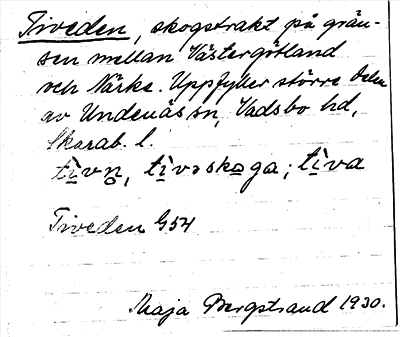 Tiveden, skogstrakt på grän-
sen mellan Västergötland
och Närke. Uppfyller större delen
av Undenäs sn, Vadsbo hd,
Skarab. l.
tìvn̥, tìvəskaga; tìva
Tiveden G54
Maja Bergstrand 1930.